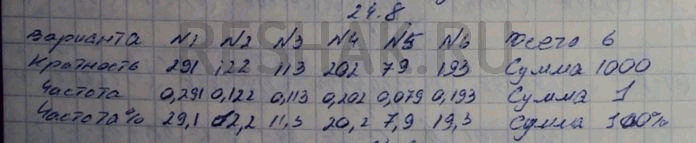 24.8
Варианта N1 N2 N3 N4 N5 N6 Всего 6
Кратность 291 122 113 202 79 193 Сумма 1000
Частота 0,291 0,122 0,113 0,202 0,079 0,193 Сумма 1
Частота% 29,1 12,2 11,3 20,2 7,9 19,3 Сумма 100%